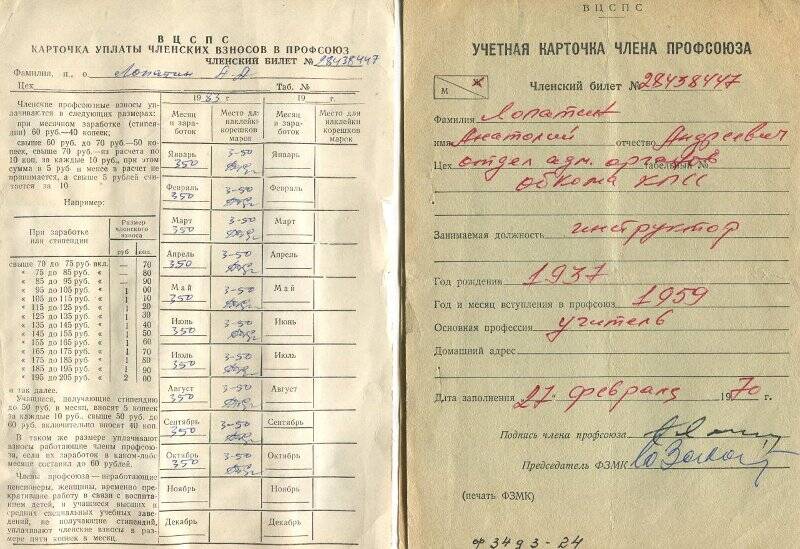 ВЦСПС
КАРТОЧКА УПЛАТЫ ЧЛЕНСКИХ ВЗНОСОВ В ПРОФСОЮЗ
ЧЛЕНСКИЙ БИЛЕТ № 28438447
Фамилия, и., о Лопатин А.А
Цех Таб. №
Членские профсоюзные взносы уплачиваются в следующих размерах:
при месячном заработке (стипендии) 60 руб.—40 копеек;
свыше 60 до 70 руб.—50 копеек, свыше 70 руб.—из расчета по
10 коп. за каждые 10 руб., при этом
сумма в 5 руб. и менее в расчет не
принимается, а свыше 5 рублей считается за 10
Например:
При заработке или стипендии Размер членского взноса
руб коп.
свыше 70 до 75 руб. вкл. — 70
" 75 до 85 руб. " — 80
" 85 до 95 руб. " — 90
" 95 до 105 руб. " 1 00
" 105 до 115 руб. " 1 10
" 115 до 125 руб. " 1 20
" 125 до 135 руб. " 1 30
" 135 до 145 руб. " 1 40
" 145 до 155 руб. " 1 50
" 155 до 165 руб. " 1 60
" 165 до 175 руб. " 1 70
" 175 до 185 руб. " 1 80
" 185 до 195 руб. " 1 90
" 195 до 205 руб. " 2 00
и так далее.
Учащиеся, получающие стипендию
до 50 руб. в месяц, вносят 5 копеек
за каждые 10 руб., свыше 50 руб. до
60 руб. включительно вносят 40 коп.
В таком же размере уплачивают
взносы работающие члены профсоюза, если их заработок в каком-либо
месяце составил до 60 рублей.
Члены профсоюза — неработающие
пенсионеры, женщины, временно прекратившие работу в связи с воспитанием детей, и учащиеся высших и
средних специальных учебных заведений, не получающие стипендий,
уплачивают членские взносы в размере пяти копеек в месяц.
1983 г 19 г.
Месяц и заработок Место для наклейки корешков марок Месяц и заработок Место для наклейки корешков марок
Январь 350 3-50 Январь
Февраль 350 3-50 Февраль
Март 350 3-50 Март
Апрель 350 3-50 Апрель
Май 350 3-50 Май
Июнь 350 3-50 Июнь
Июль 350 3-50 Июль
Август 350 3-50 Август
Сентябрь 350 3-50 Сентябрь
Октябрь 350 3-50 Октябрь
Ноябрь Ноябрь
Декабрь Декабрь
ВЦСПС
УЧЕТНАЯ КАРТОЧКА ЧЛЕНА ПРОФСОЮЗА
М
Членский билет № 28438447
Фамилия Лопатин
имя Анатолий отчество Андреевич
Цех отдел адм. органов табельный №
обкома КПСС
Занимаемая должность инструктор
Год рождения 1937
Год и месяц вступления в профсоюз 1959
Основная профессия учитель
Домашний адрес
Дата заполнения 27 февраля 1970 г.
Подпись члена профсоюза
Председатель ФЗМК
(печать ФЗМК)
ф 3493-24